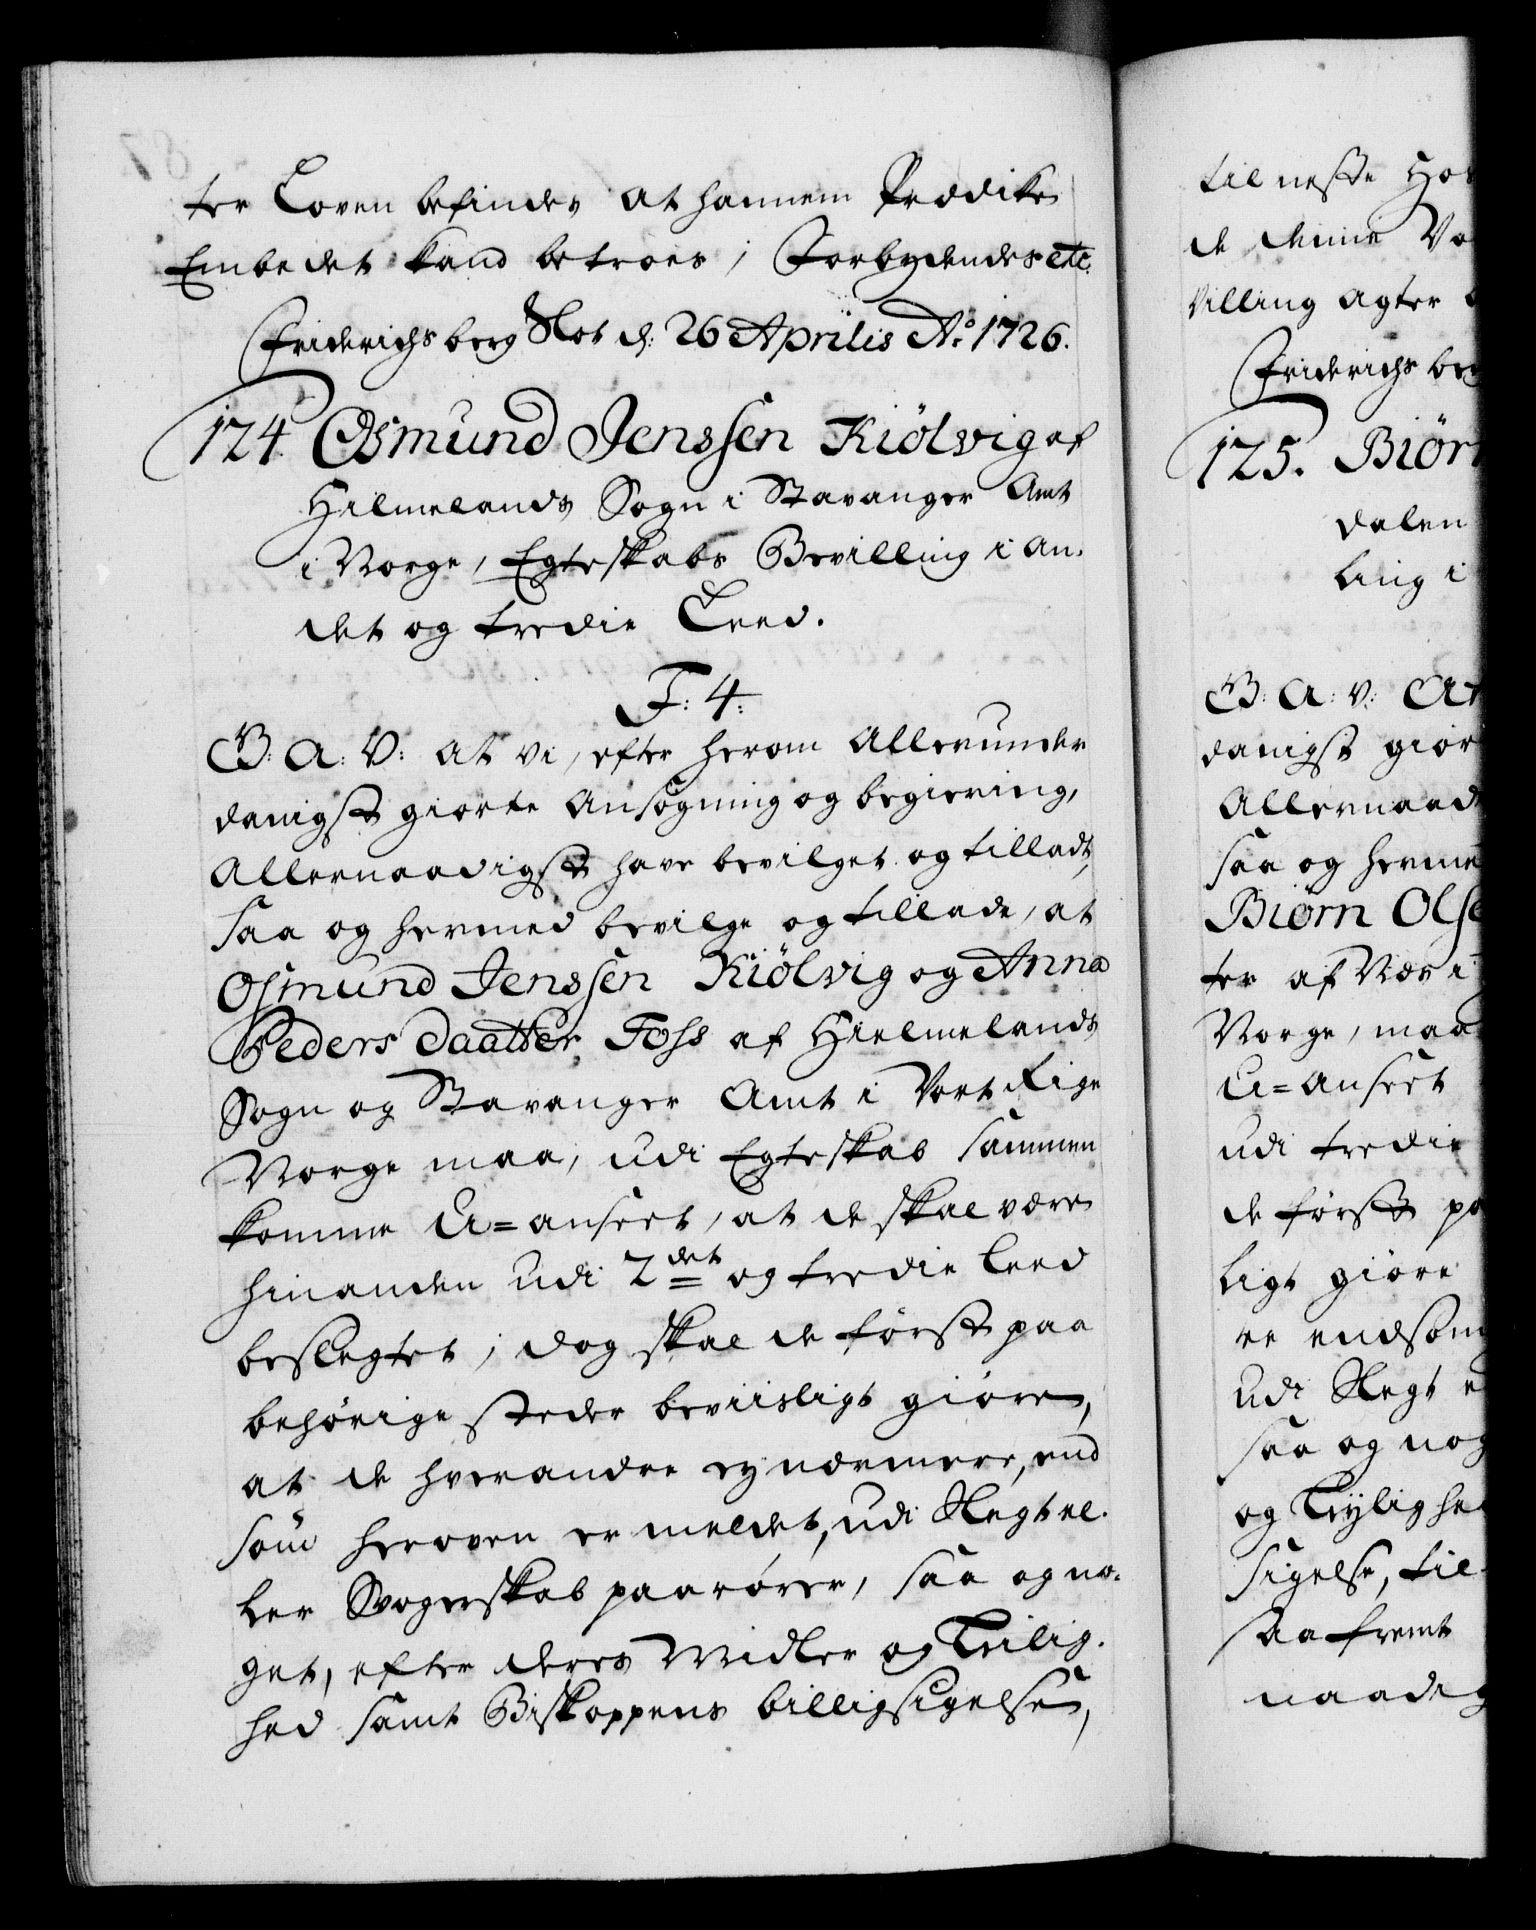 ter Loven befindes at hannem Prædike
Embedet kand betroes; Forbydendes etc.
Friderichsberg Slot d: 26 Aprilis Aº 1726.
124. Osmund Jenssen Kiölvig af
Hilmelands Sogn i Stavanger Amt
i Norge, Egteskabs Bevilling i an-
det og tredie Leed.
F: 4:
G: A: V: at vi, efter herom Allerunder
danigst giorte Ansøgning og begiering,
Allernaadigst have bevilget og tilladt,
saa og hermed bevilge og tillade, at
Osmund Jenssen Kiölvig og Anna
Peders daatter Foss af Hielmelands
Sogn og Stavanger Amt i Vort Rige
Norge maa, udi Egteskab sammen
komme U=anseet, at de skal være
hinanden udi 2det og tredie Leed
beslegtet; dog skal de først paa
behørige steder beviisligt giøre,
at de hverandre ey nærmere, end
som heroven er meldet, udi Slegt el-
ler Svogerskab paarører, saa og no-
get, efter deres Midler og Leilig-
hed samt Biskoppens billigsigelse,
til neste Hos
de denne
villing agter
Friderichsberg
125. Biørn
dalen
ling i
G: A: V: At
danigst giør
Allernaad
saa og herme
Biørn Olse
ter af Næs i
Norge, maa
U=anseet
udi tredie
de først pa
ligt giøre
re endsom
udi Slegt e
saa og nog
og Leylighe
sigelse, til
saafremt
naadig